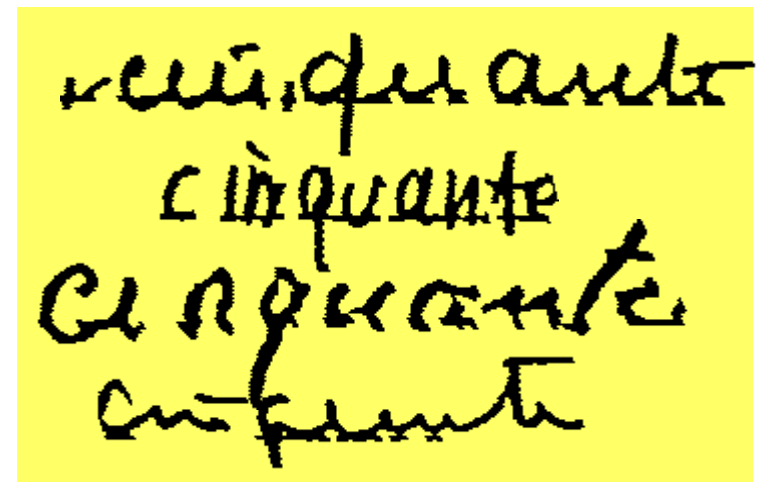 cinquante
cinquante
cinquante
cinquante